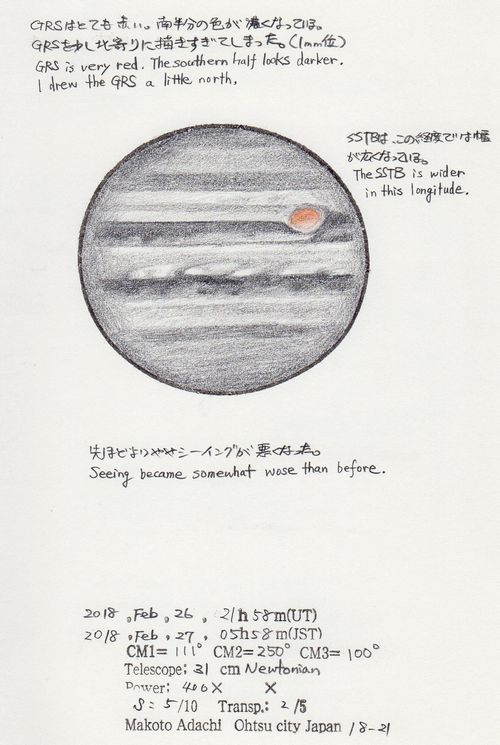 GRSはとても赤い。南半分の色が濃くなっている。
GRSを少し北寄りに描きすぎてしまった。(1mm位)
GRS is very red. The southern half looks darker.
I drew the GRS a little north.
SSTBは、この経度では幅
が広くなっている。
The SSTB is wider
in this longitude.
先ほどよりややシーイングが悪くなった。
Seeing became somewhat wose than before.
2018 , Feb , 26 , 21h 58m(UT)
2018 , Feb , 27 , 05h58m(JST)
CM1= 111° CM2= 250° CM3= 100°
Telescope: 31 cm Newtonian
Power: 400× ×
S= 5/10 Transp.: 2/5
Makoto Adachi Ohtsu city Japan 18-21